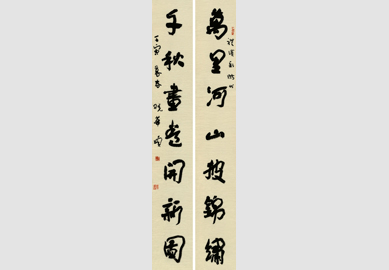 萬里河山披錦繡
千秋畫卷開新圖